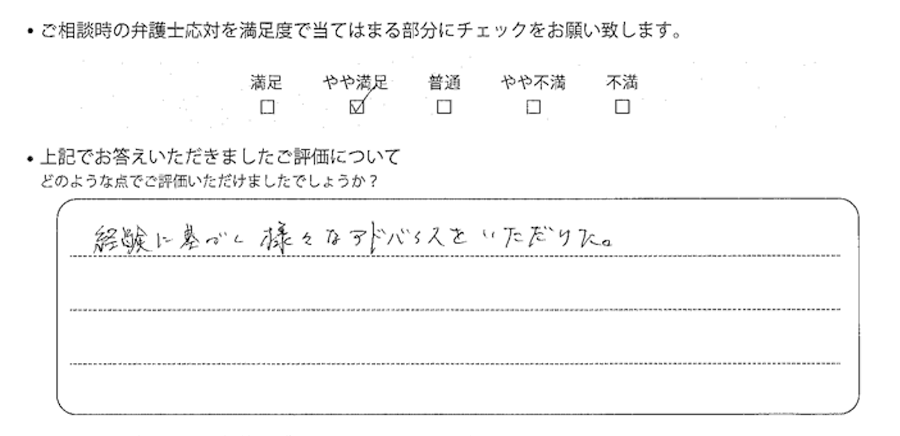 ・ご相談時の弁護士応対を満足度で当てはまる部分にチェックをお願い致します。
満足 やや満足 普通 やや不満 不満
□ ☑ □ □ □
・上記でお答えいただきましたご評価について
どのような点でご評価いただけましたでしょうか?
経験に基づく様々なアドバイスをいただけた。